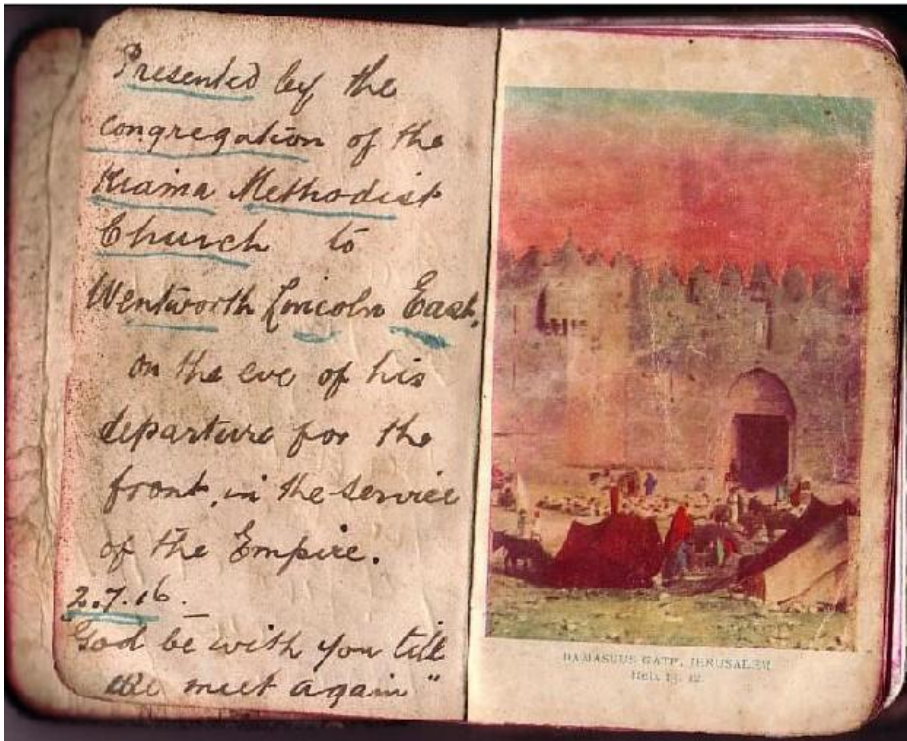 Presented by the
congregation of the
Kiama Methodist
Church to
Wentworth Lincoln East,
on the eve of his
departure for the
front, in the service
of the Empire.
2.7.16.
"God be with you till
we meet again"
DAMASCUS GATE, JERUSALEM
Heb. 13. 12.